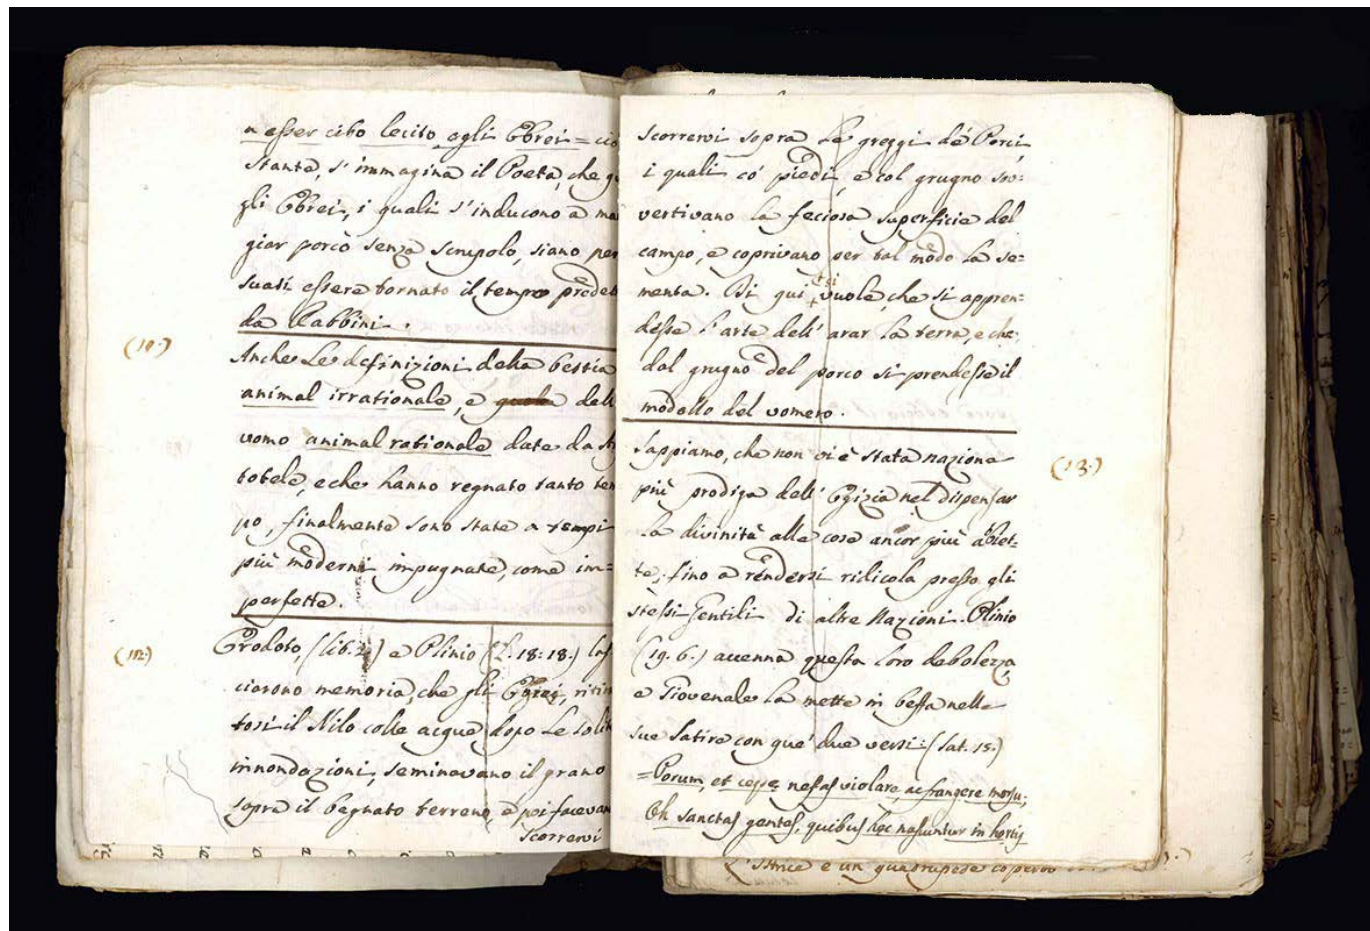 a esser cibo lecito agli Ebrei = cio
stante, s'immagina il Poeta, che
gli Ebrei, i quali s'inducono a man
giar porco senza scrupolo, siano per
suasi essere tornato il tempo predet
da Rabbini.
(10.)
Anche le definizioni della bestia
animal irrationale, e dell
uomo animal rationale date da
totele, e che hanno regnato tanto tem
po, finalmente sono state a tempi
più moderni impugnate, come im=
perfette.
(12.)
Erodoto, (lib. 2.) e Plinio (L. 18: 18.) las
ciarono memoria, che gli Egizi, ritira
tosi il Nilo colle acque dopo le solite
innondazioni, seminavano il grano
sopra il bagnato terreno, e poi facevan
scorrervi
scorrervi sopra le greggi de' Porci,
i quali co' piedi, e col grugno sco:
vertivano la fecciosa superficie del
campo, e coprivano per tal modo la se=
menta. Di qui si vuole, che si appren-
desse l'arte dell'arar la terra, e che
dal grugno del porco si prendesse il
modello del vomero.
(13.)
Sappiamo, che non vi è stata nazione
più prodiga dell'Egizia nel dispensar
la divinità alle cose ancor più abiet-
te, fino a rendersi ridicola presso gli
stessi Gentili di altre Nazioni. Plinio
(19. 6.) accenna questa loro debolezza,
e Giovenale la mette in beffa nelle
sue Satire con que' due versi: (Sat. 15.)
= Porum, et cepe nefas violare, ac frangere morsu;
Oh sanctas gentes, quibus hec nascuntur in hortis
L'Istrice è un quadrupede coperto